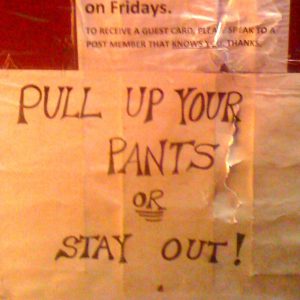 on Fridays.
TO RECEIVE A GUEST CARD, PLEASE SPEAK TO A
POST MEMBER THAT KNOWS YOU. THANKS.
PULL UP YOUR
PANTS
OR
STAY OUT!